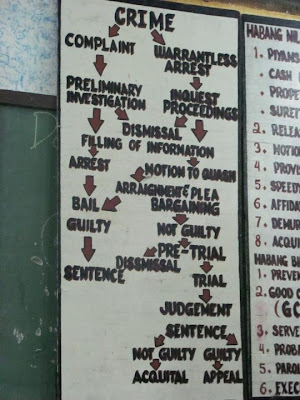 CRIME
COMPLAINT
WARRANTLESS
ARREST
PRELIMINARY
INVESTIGATION
INQUEST
PROCEEDINGS
DISMISSAL
FILLING OF INFORMATION
ARREST
MOTION TO QUASH
ARRAIGNMENT & PLEA
BARGAINING
BAIL
GUILTY
NOT GUILTY
PRE-TRIAL
DISMISSAL
SENTENCE
TRIAL
JUDGEMENT
SENTENCE
NOT GUILTY GUILTY
ACQUITAL APPEAL
HABANG NIL
1. PIYANS
• CASH
• PROPE
SURET
2. RELEA
3. MOTION
4. PROVIS
5. SPEEDY
6. AFFIDA
7. DEMUR
8. ACQUI
HABANG BI
1. PREVEN
2. GOOD C
(GC
3. SERVE
4. PROBA
5. PAROL
6. EXEC